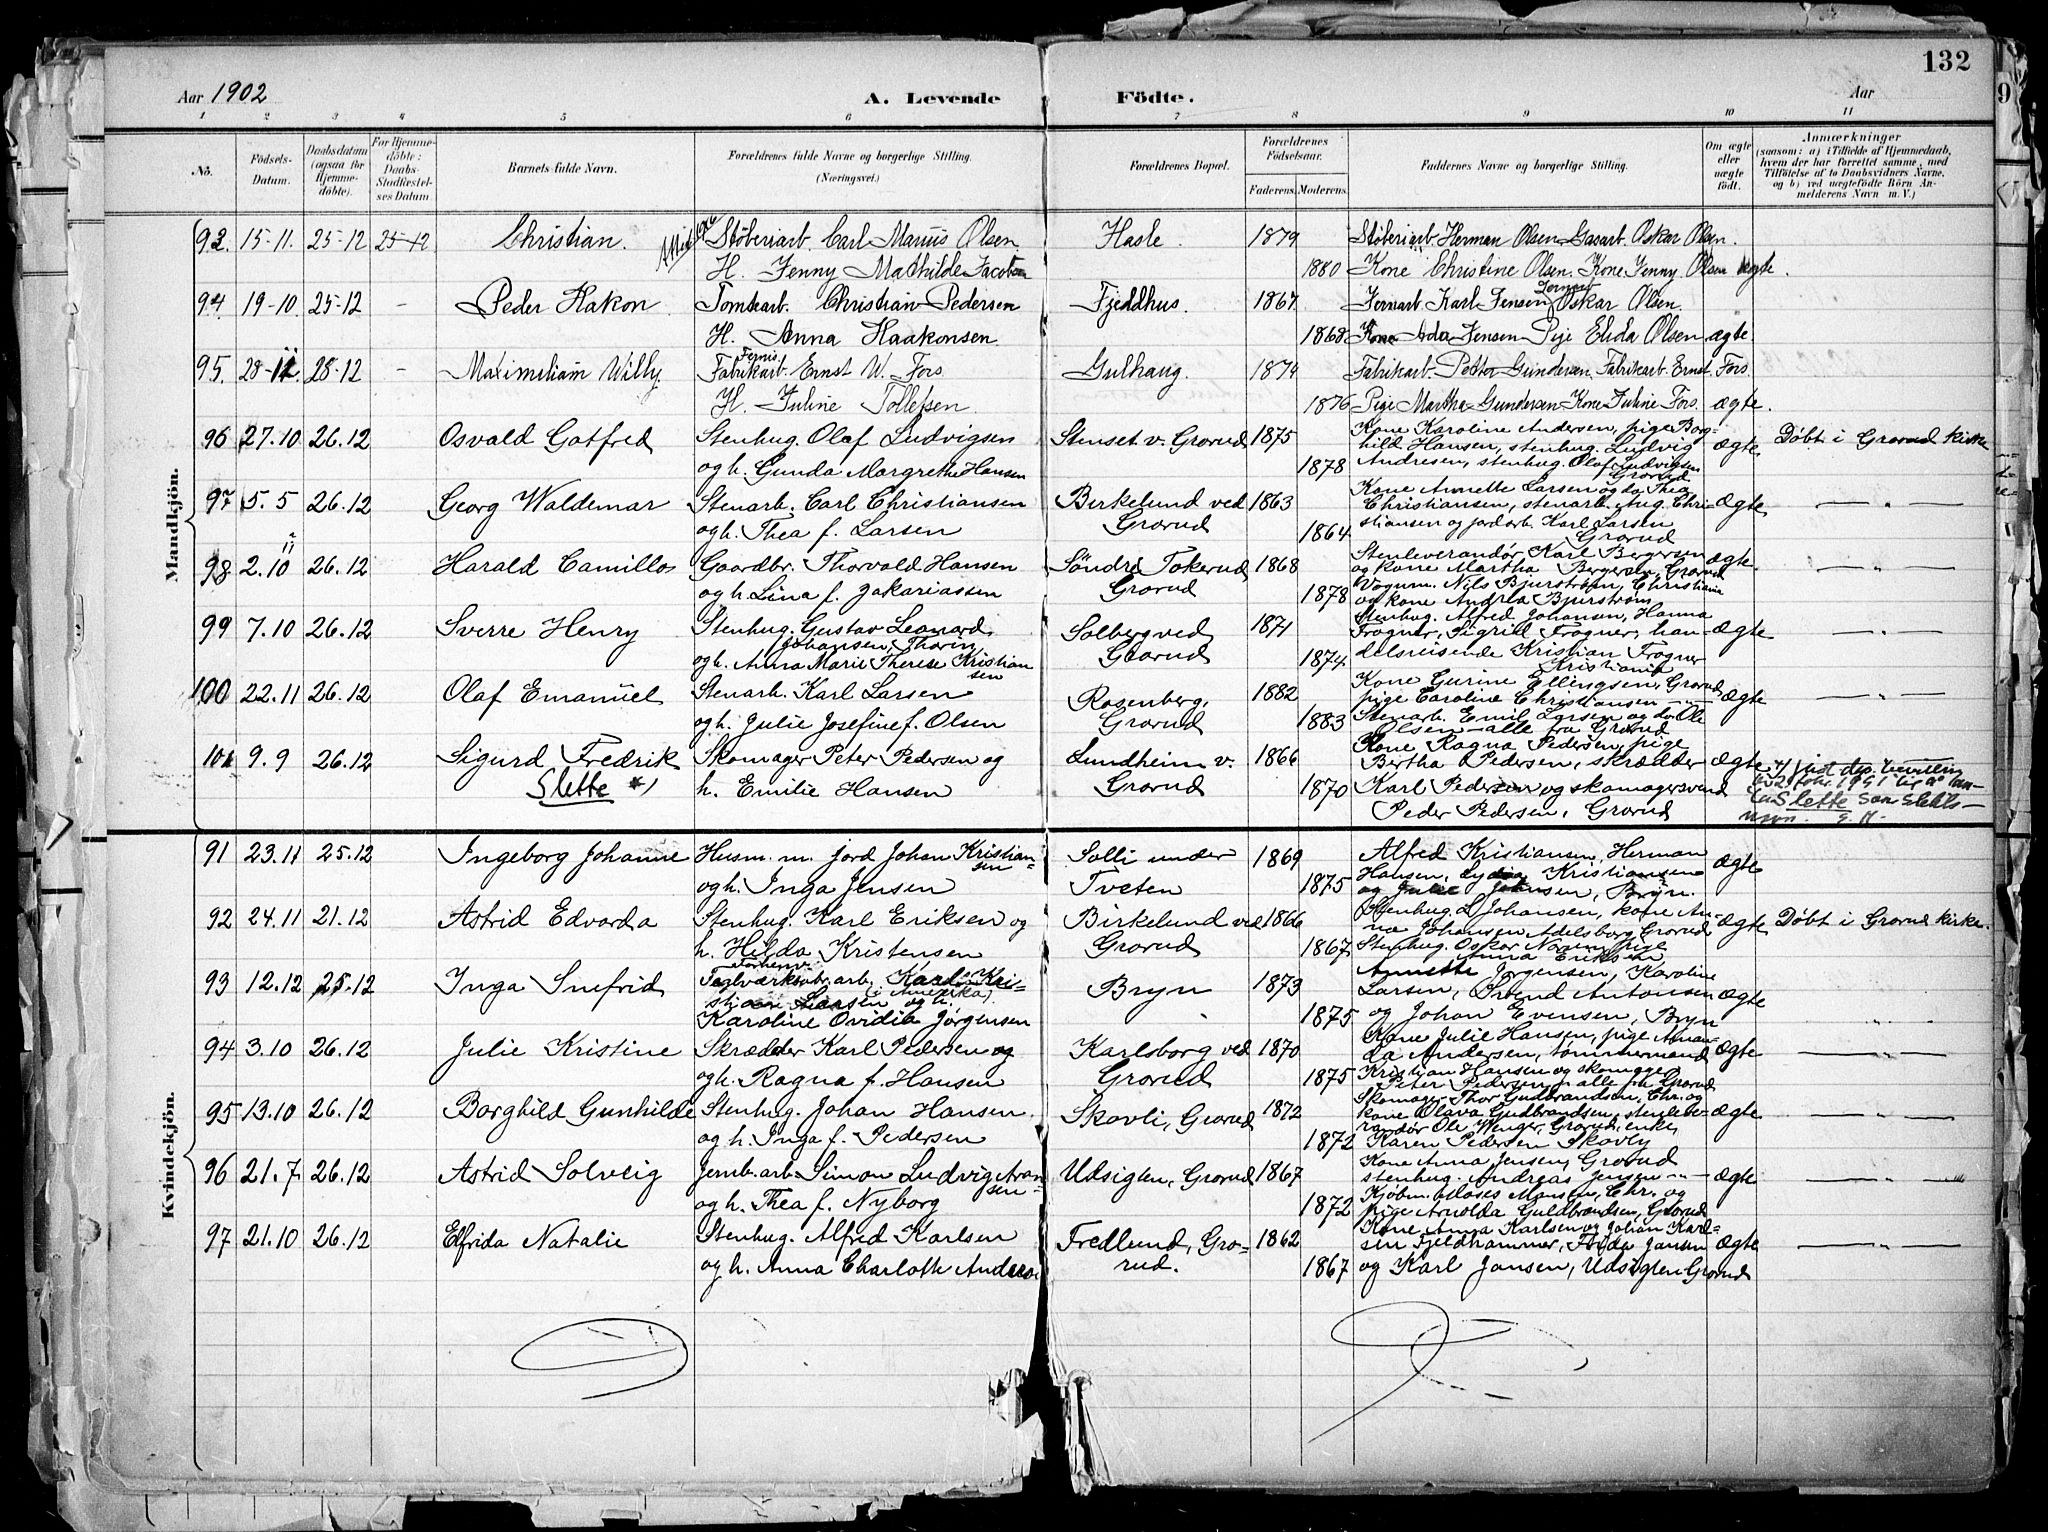 132
Aar 1902
A. Levende Födte.
Aar
1 2 3 4 5 6 7 8 9 10 11
No.
Födsels-Datum.
Daabsdatum (ogsaa for Hjemme-döbte).
For Hjemme-döbte: Daabs-Stadfæstel-ses Datum.
Barnets fulde Navn.
Forældrenes fulde Navne og borgerlige Stilling. (Næringsvei.)
Forældrenes Bopæl.
Forældrenes Födselsaar.
Faderens. Moderens.
Faddernes Navne og borgerlige Stilling.
Om ægte eller uægte födt.
Anmærkninger
(saasom: a) i Tilfælde af Hjemmedaab, hvem der har forrettet samme, med Tilföielse af to Daabsvidners Navne, og b) ved uægtefödte Börn An-melderens Navn m. V.)
Mandkjön.
93. 15-11. 25-12 25-12 Christian. Støberiarb. Carl Marius Olsen Hasle. 1879 Støberiarb. Herman Olsen Gasarb. Oskar Olsen.
H. Jenny Mathilde Jacobsen 1880 Kone Christine Olsen. Kone Jenny Olsen ægte.
94. 19-10 25-12 - Peder Hakon Tomtearb. Christian Pedersen Fjeldhus. 1867 Jernarb. Karl Jensen Oskar Olsen.
H. Anna Haakonsen 1868 Kone Ada Jensen Pige Elida Olsen ægte.
95. 28-11 28-12 - Maximiliam Willy. Fernis Fabrikarb. Ernst W. Fors Gulhaug. 1874 Fabrikarb. Petter Gundersen Fabrikarb. Ernst Fors.
H. Juline Tollefsen. 1876 Pige Martha Gundersen Kone Juline Fors. ægte.
96 27.10 26.12 Osvald Gotfred Stenhug. Olaf Ludvigsen Stenset v. Grorud 1875 Kone Karoline Andersen, pige Borg-
hild Hansen, stenhug. Ludvig ægte Døbt i Grorud kirke
og h. Gunda Margrethe Hansen 1878 Andresen, stenhug. Olaf Ludvigsen Grorud
97 5.5 26.12 Georg Waldemar Stenarb. Carl Christiansen Birkelund ved 1863 Kone Annette Larsen og do Thea
Christiansen, stenarb. Aug. Chri- ægte — " —
og h. Thea f. Larsen Grorud 1864 stiansen og jordarb. Karl Larsen Grorud
98 2.10 11 26.12 Harald Camillos Gaardbr. Thorvald Hansen Söndre Tokerud 1868 Stenleverandör Karl Bergersen ægte — " —
og kone Martha Bergersen, Grorud
og h. Lina f. Zakariassen Grorud 1878 Vognm. Nils Bjurstrøm, Christiania
og kone Andrea Bjurstrøm
99 7.10 26.12 Sverre Henry Stenhug. Gustav Leonard Solberg ved 1871 Stenhug. Alfred Johansen, Hanna
Johansen Thorin Frogner, Sigrid Frogner, han- ægte — " —
og h. Anna Marie Therese Kristiansen Grorud 1874 delsreisende Kristian Frogner Kristiania
100 22.11 26.12 Olaf Emanuel Stenarb. Karl Larsen Rosenberg, 1882 Kone Gurine Ellingsen, Grorud
pige Caroline Christiansen — ægte — " —
og h. Julie Josefine f. Olsen Grorud 1883 Stenarb. Emil Larsen og do Ole
Olsen - alle fra Grorud
101 9.9 26.12 Sigurd Fredrik Skomager Peter Pedersen og Lundheim v. 1866 Kone Ragna Pedersen, pige
Bertha Pedersen, skrædder ægte
Slette *) h. Emilie Hansen Grorud 1870 Karl Pedersen og skomagersvend
Peder Pedersen, Grorud
*) Just. dep. bevilling
1951
Slette som slekts-
navn.
Kvindekjön.
91 23.11 25.12 Ingeborg Johanne Husm. m. jord Johan Kristiansen Solli under 1869 Alfred Kristiansen, Herman ægte
Hansen, Lydia Kristiansen
og h. Inga Jensen Tveten 1875 og Julie Johnsen, Bryn.
92 24.11 21.12 Astrid Edvarda Stenhug. Karl Eriksen og Birkelund ved 1866 Stenhug. L. Johansen, kone An-
na Johansen Adelsborg Grorud ægte Døbt i Grorud kirke.
h. Hilda Kristensen Grorud 1867 Stenhug. Oskar Noren, pige Anna Eriksen
93 12.12 25.12 Inga Snefrid Forhenv. Teglværksarb. Karl Kri- Bryn 1873 Annette Jørgensen, Karoline
stian Larsen (i Amerika) og h. Larsen, Svend Antonsen ægte
Karoline Ovidia Jørgensen 1875 og Johan Evensen, Bryn
94 3.10 26.12 Julie Kristine Skrædder Karl Pedersen og Karlsborg ved 1870 Kone Julie Hansen, pige Aman-
da Andersen, tømmermand ægte — " —
og h. Ragna f. Hansen Grorud 1875 Kristian Hansen og skomager
Peter Pedersen, alle fra Grorud
95 13.10 26.12 Borghild Gunhilde Stenhug. Johan Hansen Skovli, Grorud 1872 Skomager Thor Gudbrandsen, Chr. og
kone Olava Gudbrandsen, stenleve- ægte — " —
og h. Inga f. Pedersen 1872 randør Ole Wenger, Grorud, enke
Karen Pedersen Skovly
96 21.7 26.12 Astrid Solveig Jernb.arb. Simon Ludvig Aronsen Udsigten, Grorud 1867 Kone Anna Jensen, Grorud
stenhug. Andreas Jensen — " — ægte — " —
og h. Thea f. Nyborg 1872 Kjøbm. Moses Monsen, Chr. og
pige Arnolda Guldbrandsen, Grorud
97 21.10 26.12 Elfrida Natalie Stenhug. Alfred Karlsen Fredlund, Gro- 1862 Kone Anna Karlsen og Johan Karl-
sen Fjeldhammer, Frida Jansen ægte — " —
og h. Anna Charlotte Andersen rud. 1867 og Karl Jansen, Udsigten Grorud